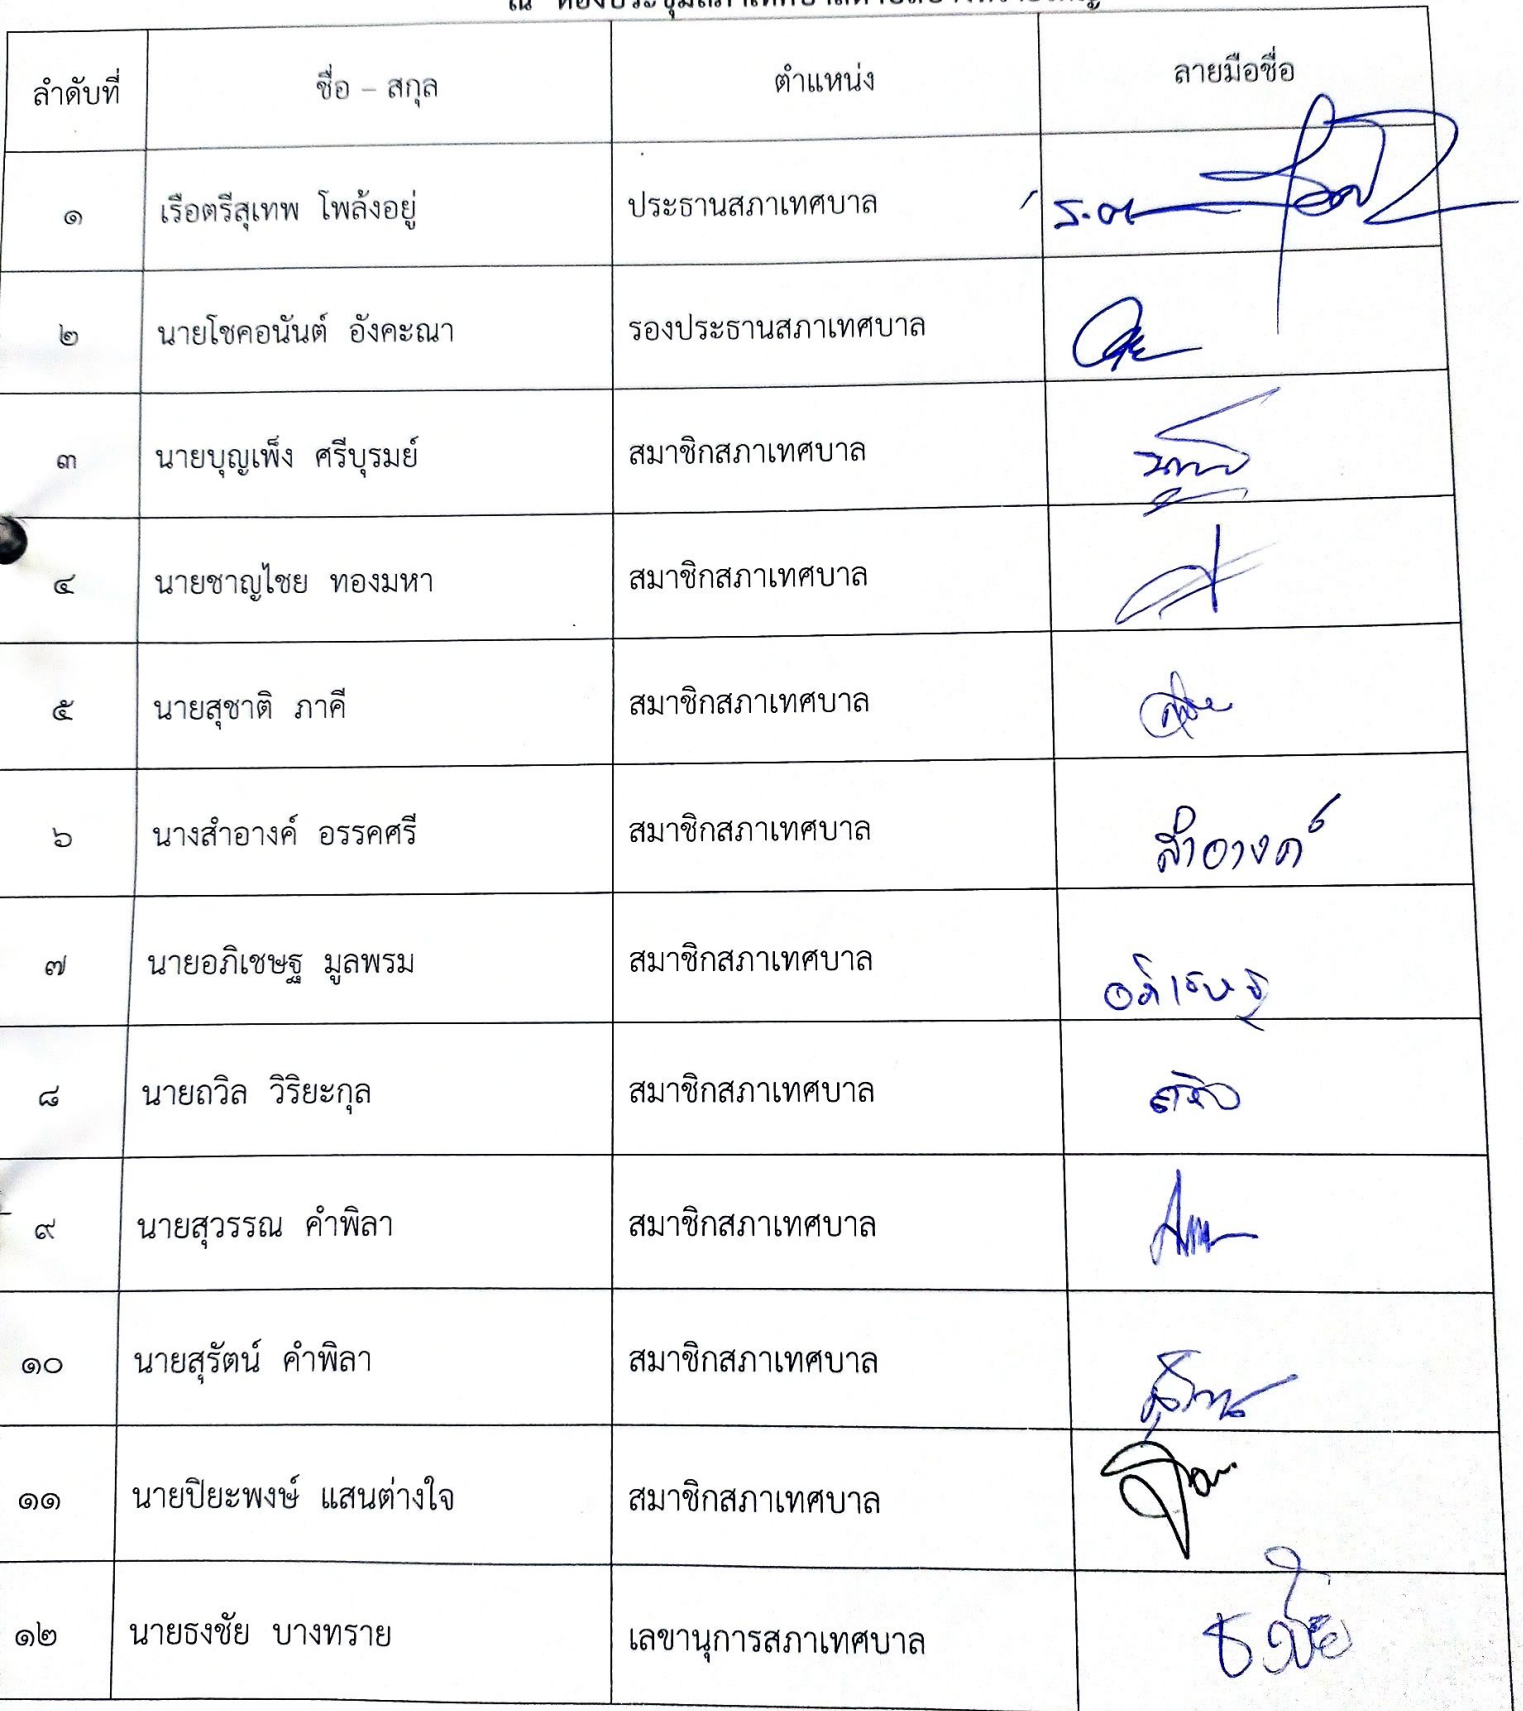 ลำดับที่ ชื่อ – สกุล ตำแหน่ง ลายมือชื่อ
๑ เรือตรีสุเทพ โพล้งอยู่ ประธานสภาเทศบาล ร.ต.
๒ นายโชคอนันต์ อังคะณา รองประธานสภาเทศบาล
๓ นายบุญเพ็ง ศรีบุรมย์ สมาชิกสภาเทศบาล
๔ นายชาญไชย ทองมหา สมาชิกสภาเทศบาล
๕ นายสุชาติ ภาคี สมาชิกสภาเทศบาล
๖ นางสำอางค์ อรรคศรี สมาชิกสภาเทศบาล สำอางค์
๗ นายอภิเชษฐ มูลพรม สมาชิกสภาเทศบาล อภิเชษฐ
๘ นายถวิล วิริยะกุล สมาชิกสภาเทศบาล ถวิล
๙ นายสุวรรณ คำพิลา สมาชิกสภาเทศบาล
๑๐ นายสุรัตน์ คำพิลา สมาชิกสภาเทศบาล
๑๑ นายปิยะพงษ์ แสนต่างใจ สมาชิกสภาเทศบาล
๑๒ นายธงชัย บางทราย เลขานุการสภาเทศบาล ธงชัย